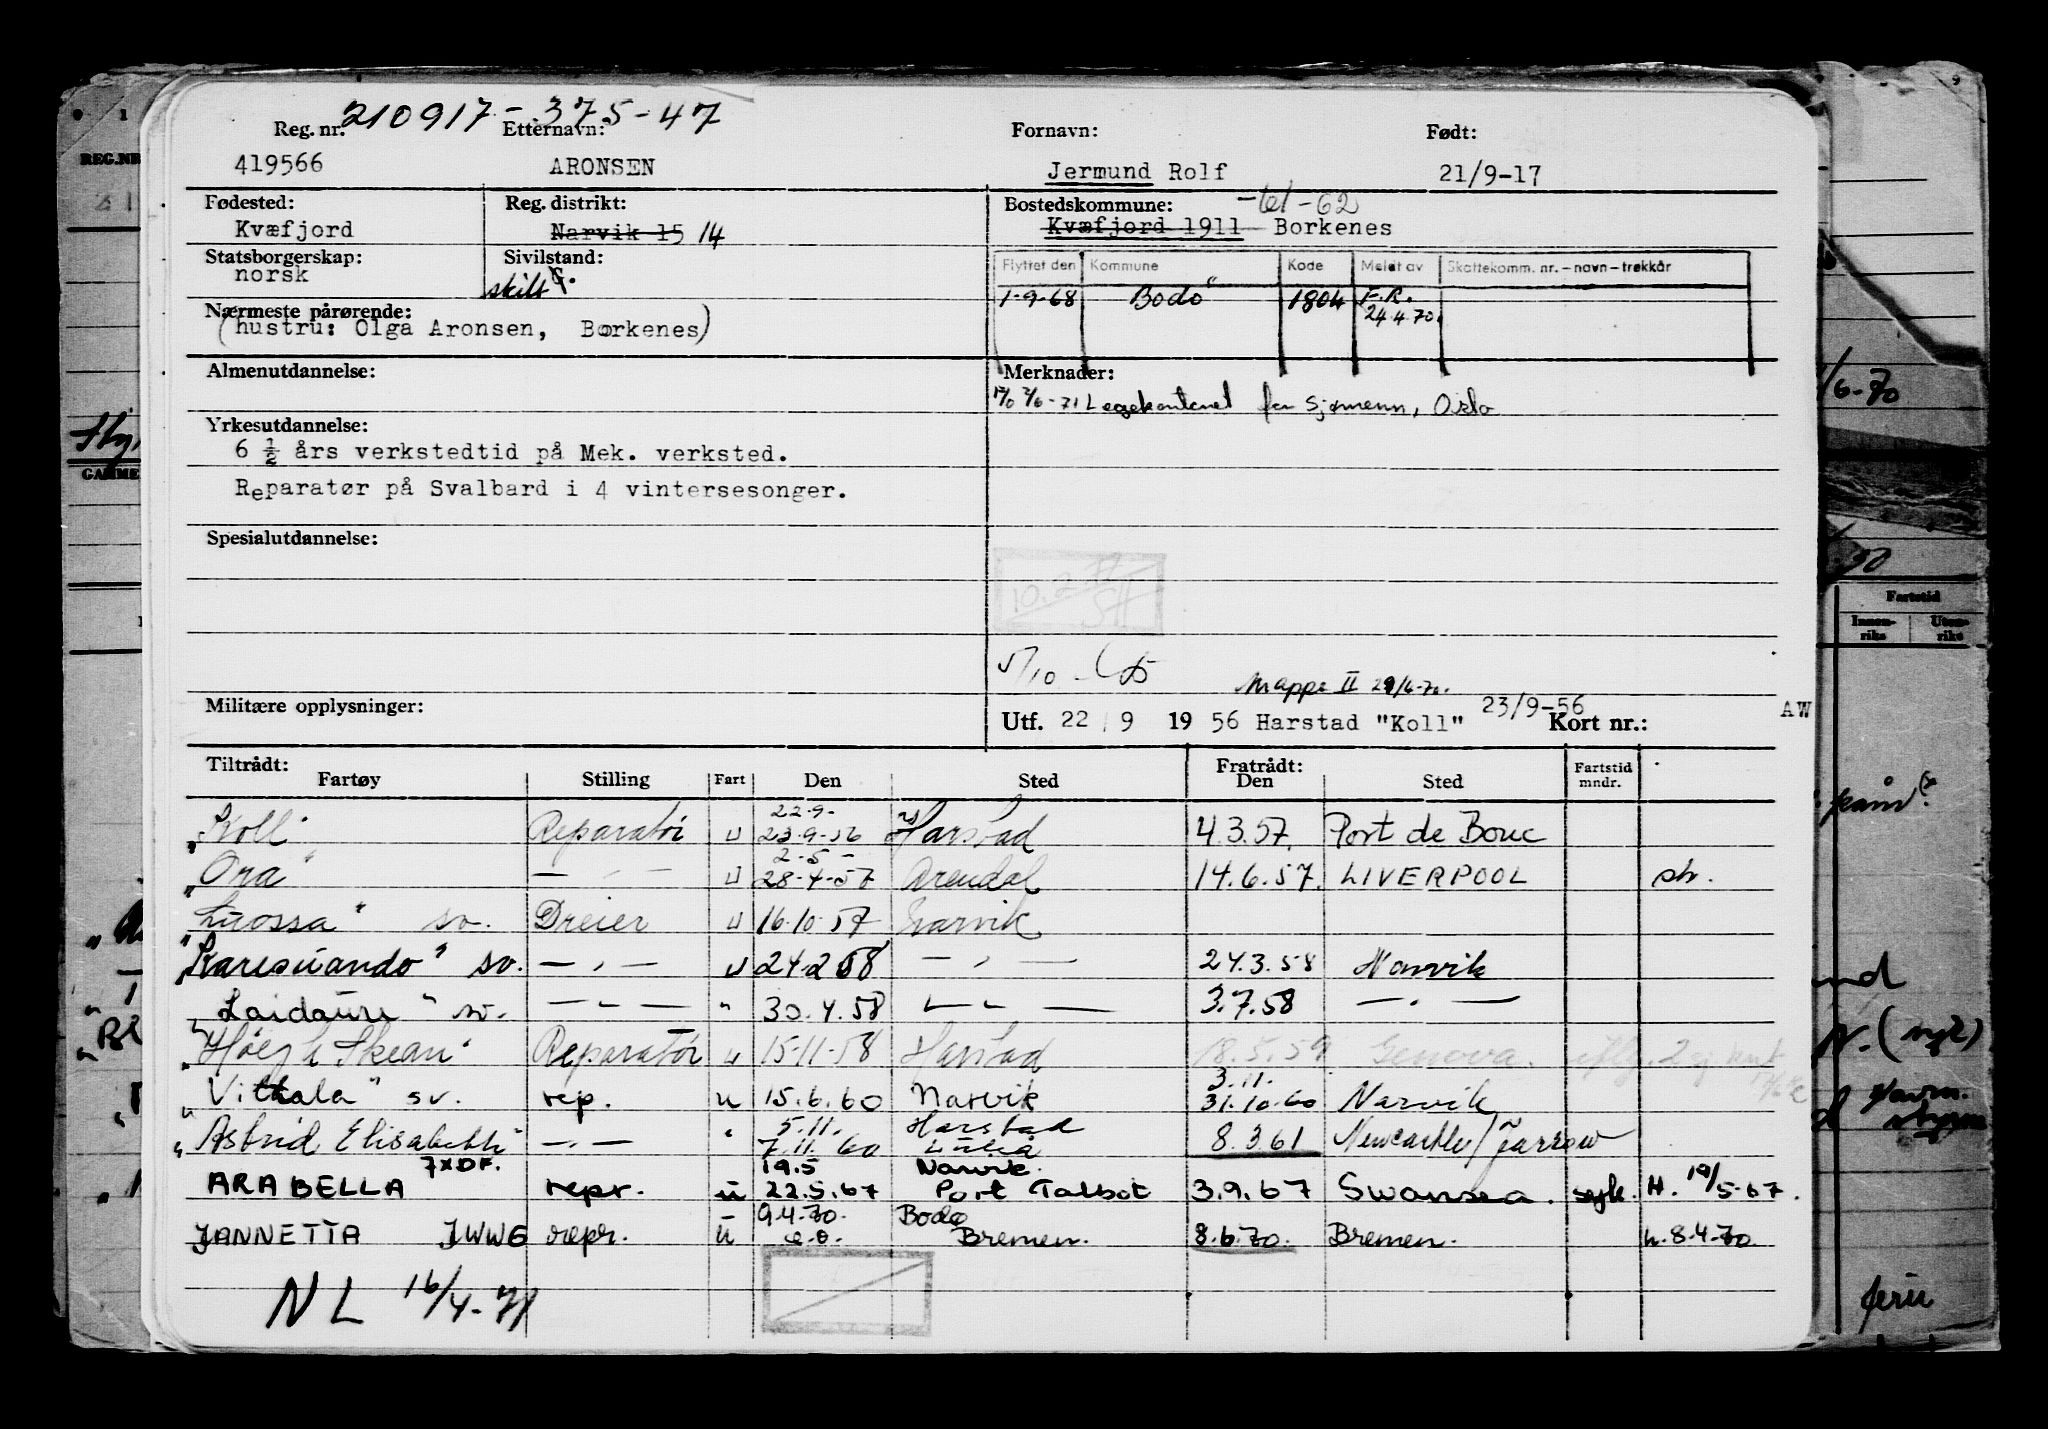 210917-375-47
Reg. nr. Etternavn: Fornavn: Født:
419566 ARONSEN Jermund Rolf 21/9-17
Fødested: Reg. distrikt: Bostedskommune: -tel-62
Kvæfjord Narvik 15 14 Kvæfjord 1911 Borkenes
Statsborgerskap: Sivilstand:
norsk skilt
Flyttet den Kommune Kode Meldt av Skattekomm. nr. – navn – trekkår
1-9-68 Bodø 1804 F.R. 24.4.70.
Nærmeste pårørende:
(hustru: Olga Aronsen, Borkenes)
Almenutdannelse: Merknader:
Legekontoret for sjømenn, Oslo
Yrkesutdannelse:
6 ½ års verkstedtid på Mek. verksted.
Reparatør på Svalbard i 4 vintersesonger.
Spesialutdannelse:
10.2
Mappe II 29/6-70.
Militære opplysninger: Utf. 22 / 9 19 56 Harstad "Koll" 23/9-56 Kort nr.: AW
Tiltrådt: Fratrådt:
Fartøy Stilling Fart Den Sted Den Sted Fartstid mndr.
22.9-
"Koll" Reparatør u 23.9-56 Harstad 4.3.57. Port de Bouc
2-5-
"Ora" — " — u 28-4-57 Arendal 14.6.57. LIVERPOOL sh.
"Luossa" sv. Dreier u 16.10.57 Narvik
"Karesuando" sv. — " — u 24.2.58 — " — 24.3.58 Narvik
"Laidaure" sv. — " — " 30.4.58 — " — 3.7.58 — " —
"Høegh Skean" Reparatør u 15-11-58 Harstad 18.5.59 Genova.
3.11.
"Vittala" sv. rep. u 15.6.60 Narvik 31.10.60 Narvik
5.11. Harstad
"Astrid Elisabeth" — " — " 7.11.60 Luleå 8.3.61 Newcastle/Jarrow
7XDF. 19.5 Narvik.
ARABELLA repr. u 22.5.67 Port Talbot 3.9.67 Swansea. syk. H. 19/5-67.
9.4.70. Bodø
JANNETTA JWWG repr. u Bremen. 8.6.70. Bremen. h.8.4.70.
NL 16/4-71
REG.NR
Fartstid
Innenriks Utenriks